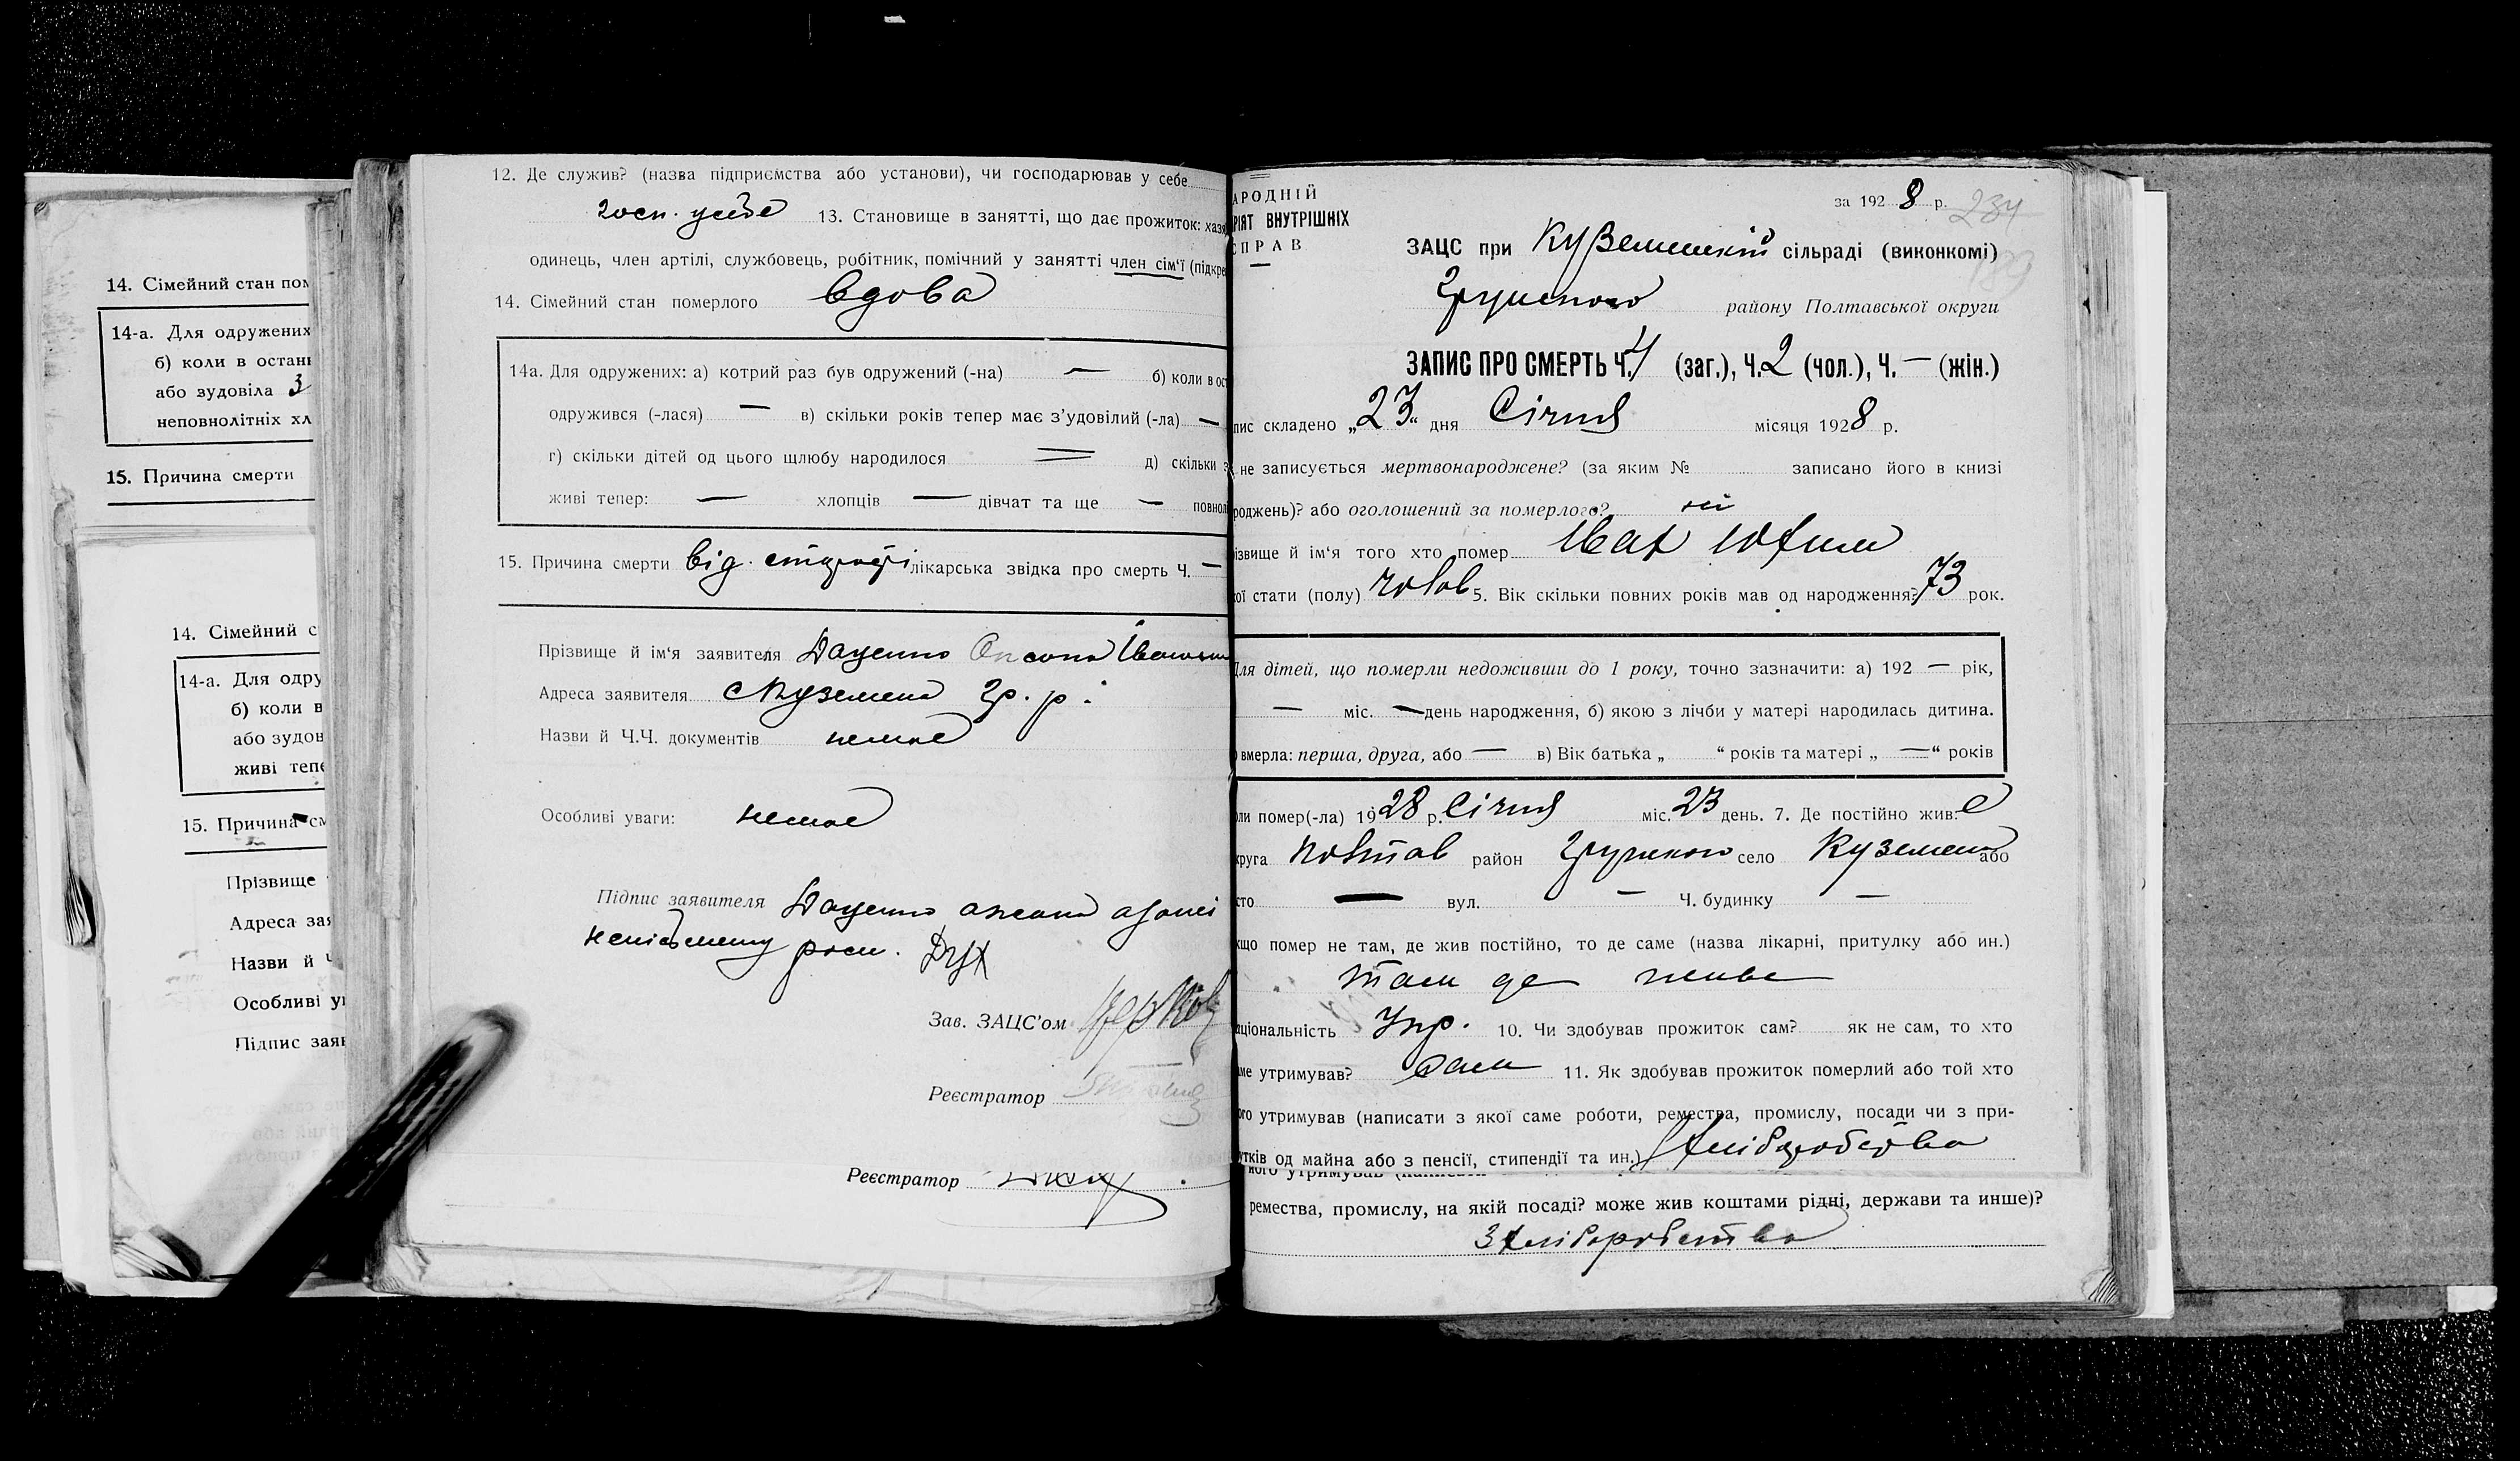 14. Сімейний стан пом
14-а. Для одружених
б) коли в остан
або зудовіла 3
неповнолітніх хл
15. Причина смерти
14. Сімейний с
14-а. Для одру
б) коли в
або зудов
живі тепе
15. Причина см
Прізвище
Адреса зая
Назви й Ч
Особливі ув
Підпис заяв
12. Де служив? (назва підприємства або установи), чи господарював у себе
госп. у себе 13. Становище в занятті, що дає прожиток: хазя
одинець, член артілі, службовець, робітник, помічний у занятті член сім'ї (підкре
14. Сімейний стан померлого вдова
14а. Для одружених: а) котрий раз був одружений (-на) — б) коли в ос
одружився (-лася) — в) скільки років тепер має з'удовілий (-ла) —
г) скільки дітей од цього шлюбу народилося = д) скільки з
живі тепер: — хлопців — дівчат та ще — повнол
15. Причина смерти від старості лікарська звідка про смерть Ч. —
Прізвище й ім'я заявителя Даценко Оксана Іванівн
Адреса заявителя с Куземена Гр. р.
Назви й Ч.Ч. документів немає
Особливі уваги: немає
Підпис заявителя Даценко оксана
неписьмену росп.
Зав. ЗАЦС'ом
Реєстратор
Реєстратор
АРОДНІЙ
РІЯТ ВНУТРІШНІХ
СПРАВ
за 1928 р. 234
ЗАЦС при Куземинській сільраді (виконкомі)
189
Грунського району Полтавської округи
ЗАПИС ПРО СМЕРТЬ Ч. 4 (заг.), Ч. 2 (чол.), Ч. — (жін.)
пис складено „23“ дня Січня місяця 1928 р.
не записується мертвонароджене? (за яким № записано його в книзі
роджень)? або оголошений за померлого? ні
ізвище й ім'я того хто помер Юхим
ої стати (полу) чолов 5. Вік скільки повних років мав од народження? 73 рок.
Для дітей, що померли недоживши до 1 року, точно зазначити: а) 192 — рік,
— міс. — день народження, б) якою з лічби у матері народилась дитина.
вмерла: перша, друга, або — в) Вік батька „ “ років та матері „ — “ років
оли помер(-ла) 1928 р. Січня міс. 23 день. 7. Де постійно жив: є
круга Полтав район Грунського село Куземена або
сто — вул. — Ч. будинку —
кщо помер не там, де жив постійно, то де саме (назва лікарні, притулку або ин.)
там де живе
аціональність Укр. 10. Чи здобував прожиток сам? як не сам, то хто
ме утримував? сам 11. Як здобував прожиток померлий або той хто
ого утримував (написати з якої саме роботи, ремества, промислу, посади чи з при-
утків од майна або з пенсії, стипендії та ин.) Хліборобство
ного утримував (написати
ремества, промислу, на якій посаді? може жив коштами рідні, держави та инше)?
З хліборобства